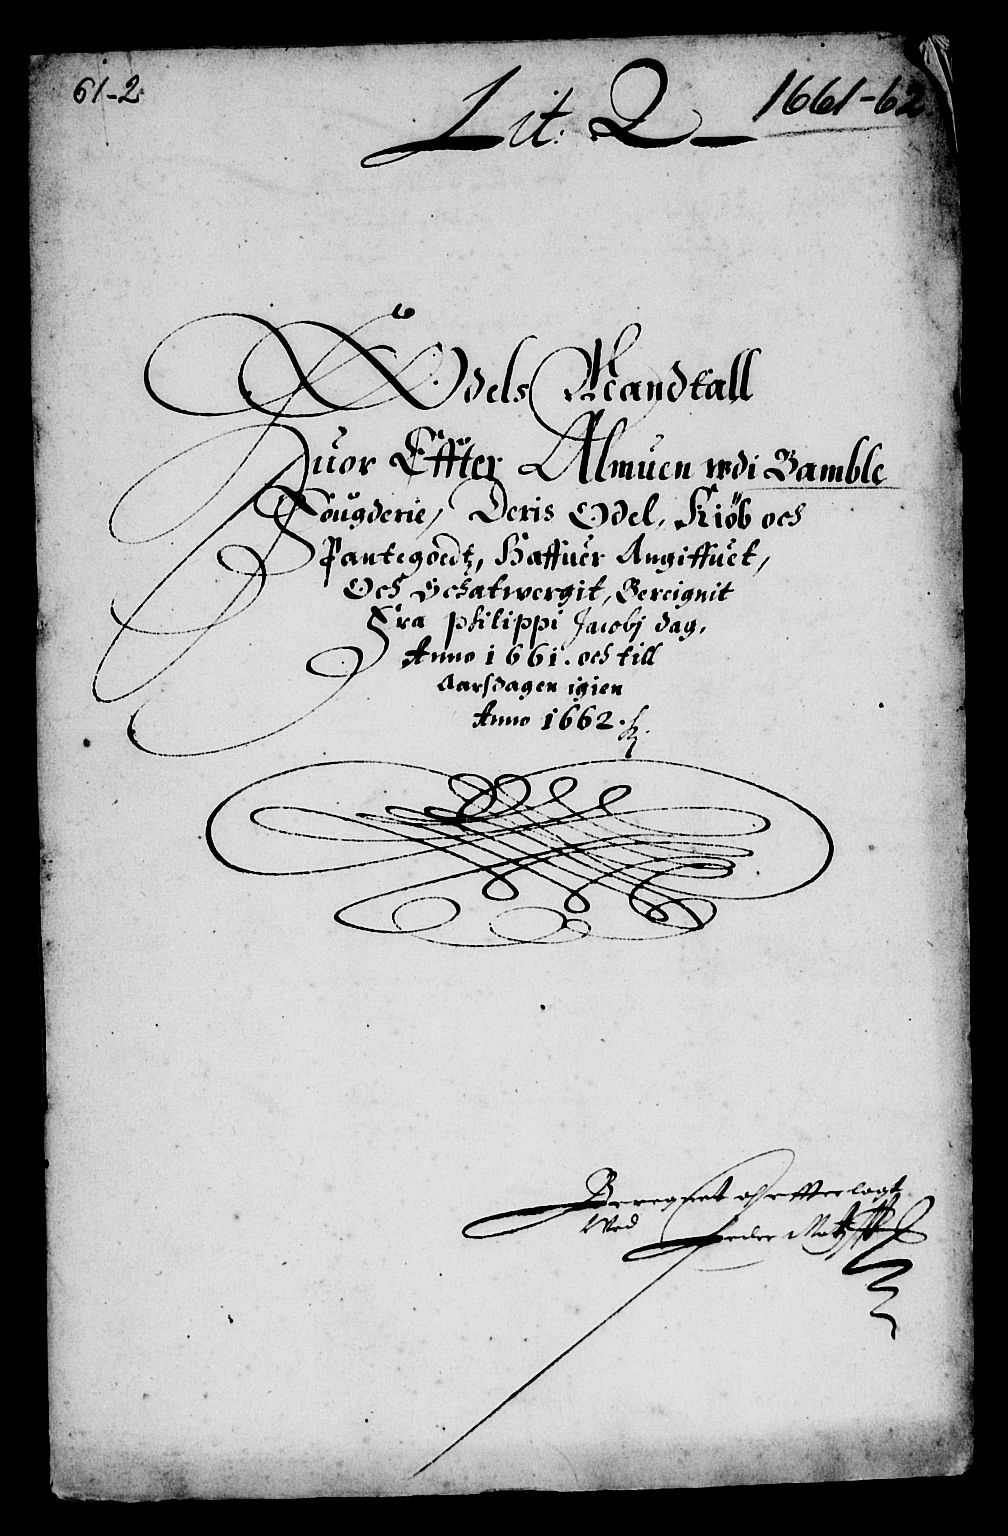 61-2
Lit: Q
1661-62
Odels Mandtall
Huor Effter Almuen udi Bamble
Fougderie, Deris Odel, Kiøb och
Pantegoedtz, Haffuer Angiffuet,
Och Schatwergit, Bereignit
Fra Philippi Jacobj dag,
Anno 1661. och till
Aarsdagen igien
Anno 1662.
Beregnet och efterlagt
Wed Peder